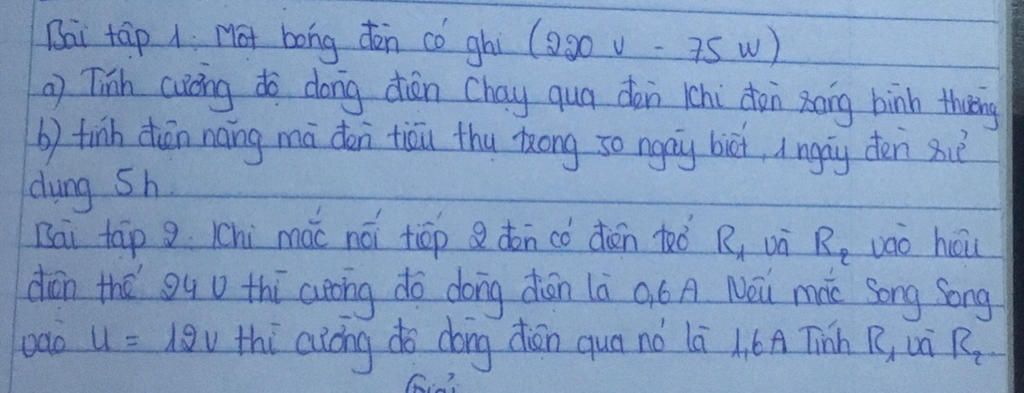 Bài tập 1: Một bóng đèn có ghi (220 V - 75 W)
a) Tính cường độ dòng điện chạy qua đèn khi đèn sáng bình thường
b) tính điện năng mà đèn tiêu thụ trong 30 ngày biết, 1 ngày đèn sử
dụng 5h.
Bài tập 2. Khi mắc nối tiếp 2 đèn có điện trở R₁ và R₂ vào hiệu
điện thế 24 V thì cường độ dòng điện là 0,6 A Nếu mắc Song Song
vào U = 12V thì cường độ dòng điện qua nó là 1,6A Tính R₁ và R₂.
Giải